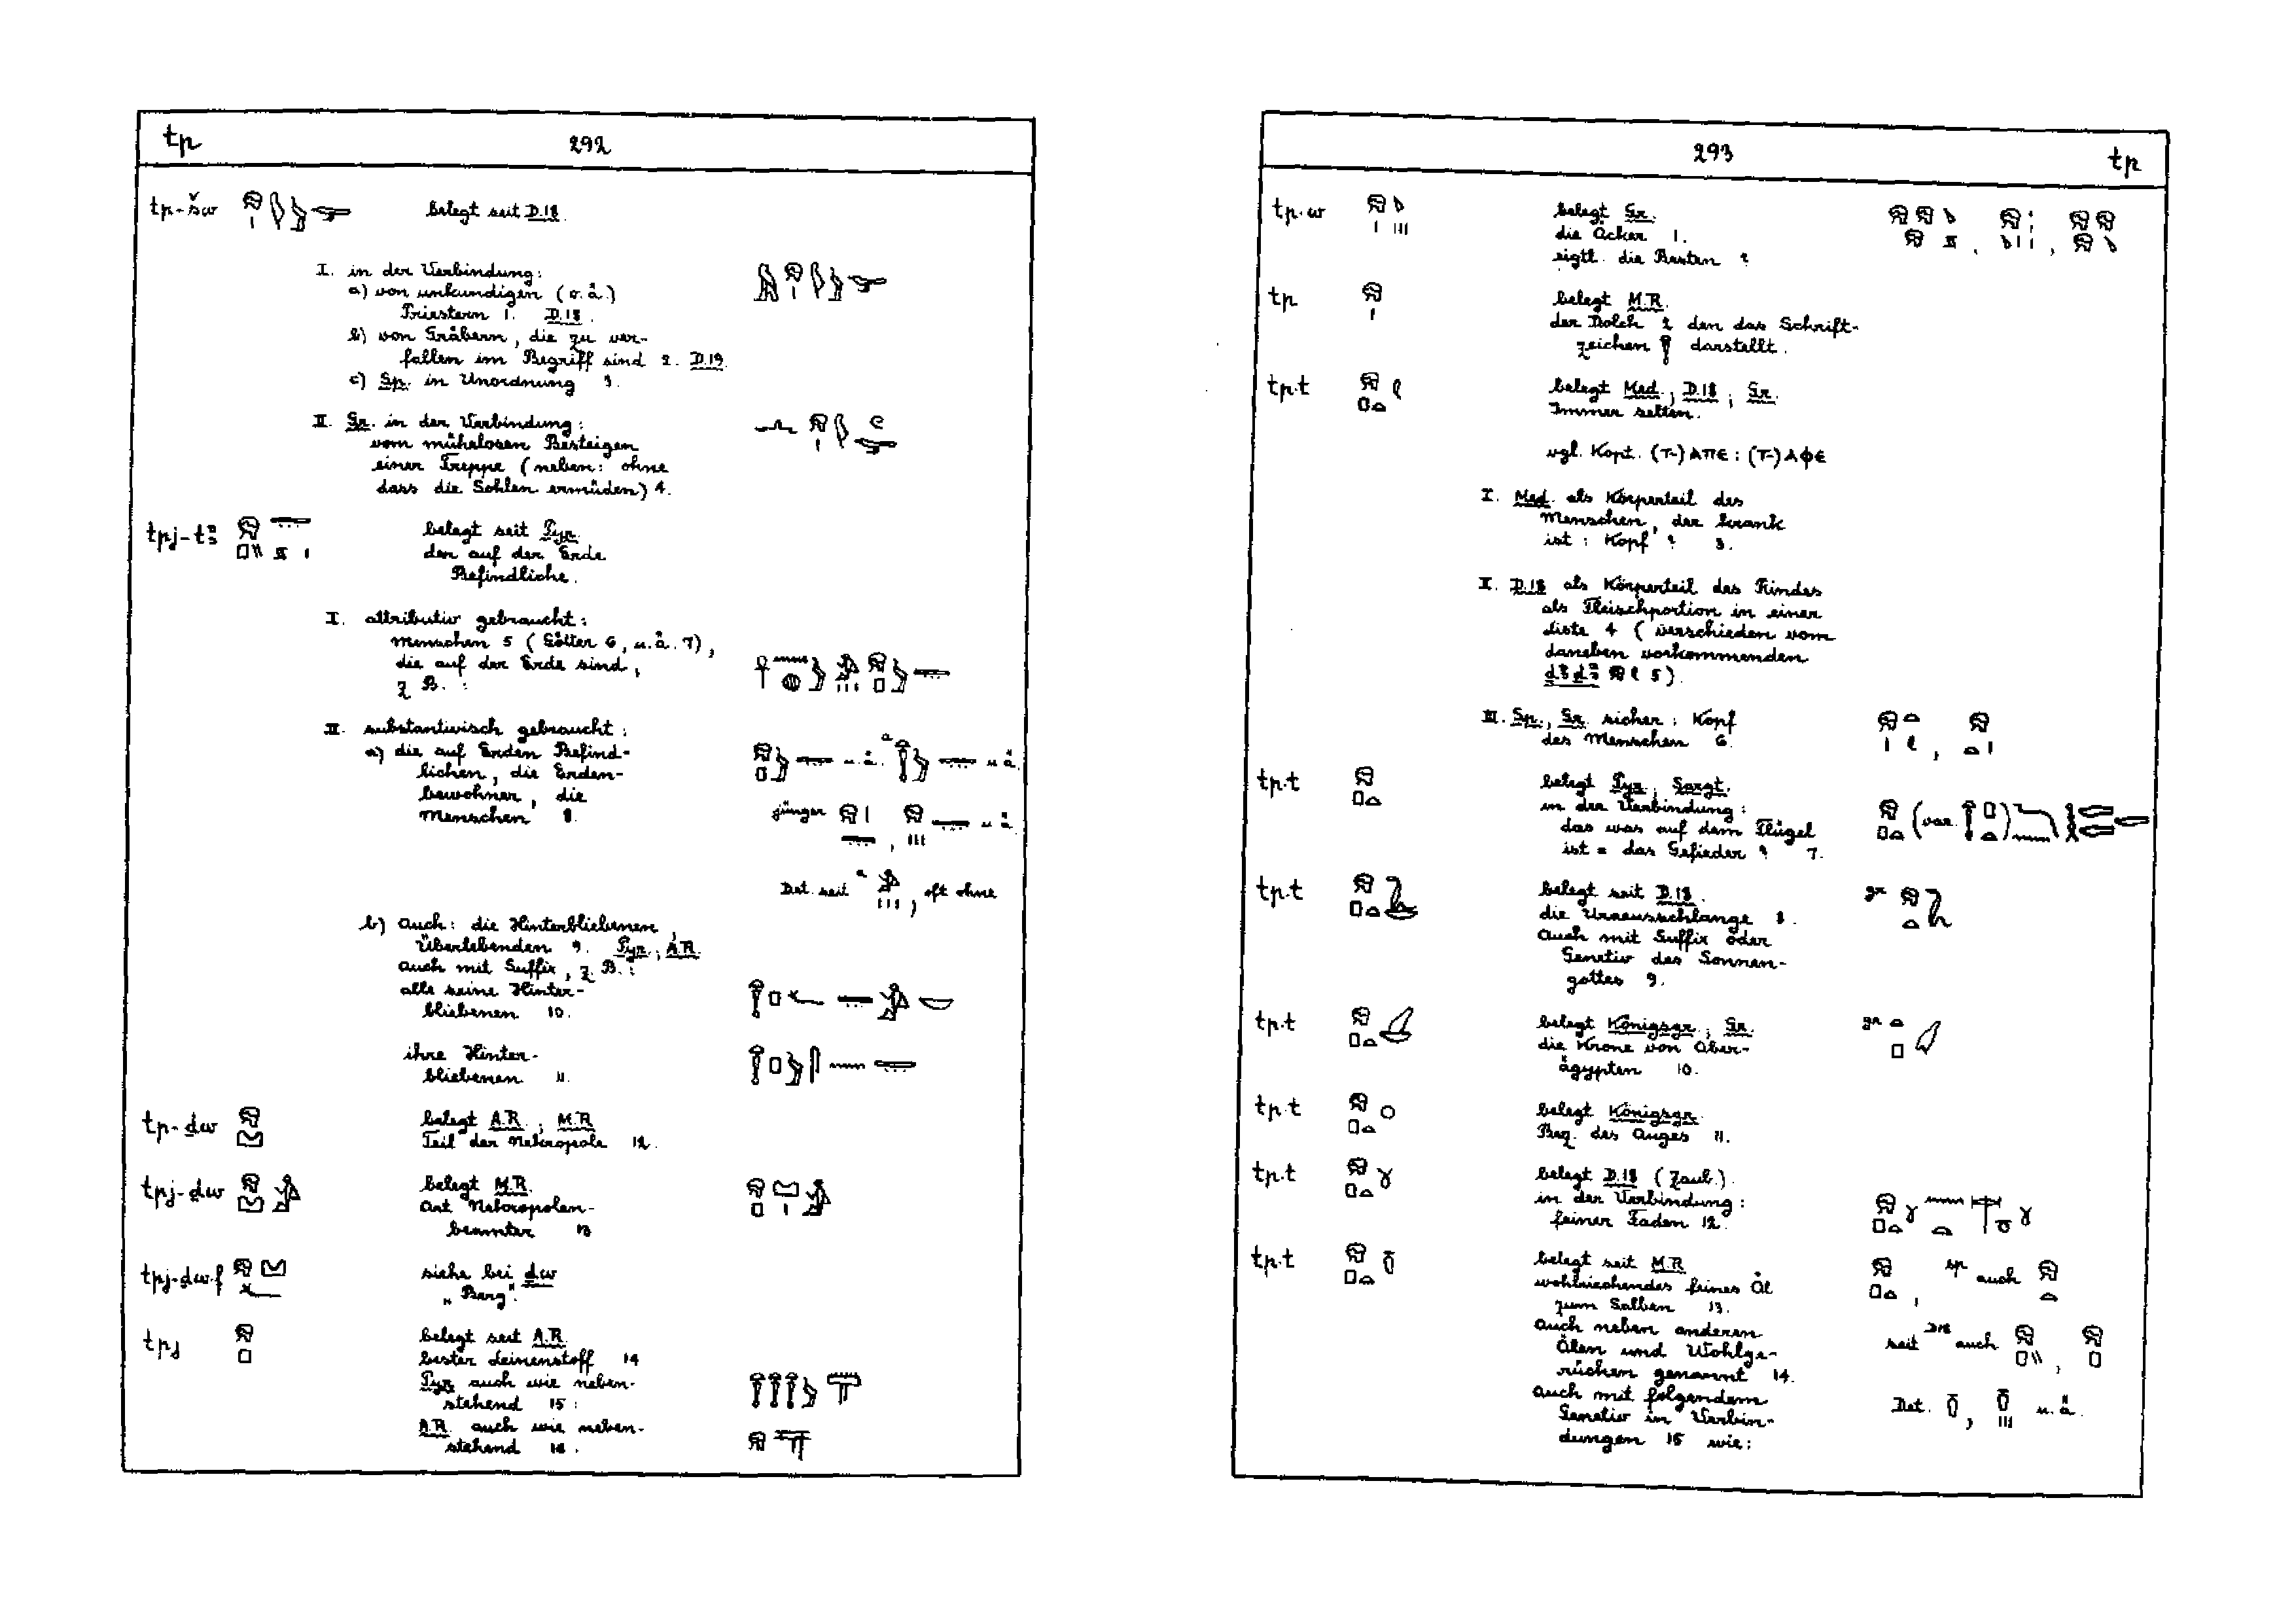 tp
292
tp-šw belegt seit D.18.
I. in der Verbindung:
a) von unkundigen (o.ä.)
Priestern 1. D.18.
b) von Gräbern, die zu ver-
fallen im Begriff sind 2. D.19.
c) Sp. in Unordnung 3.
II. Gr. in der Verbindung:
vom mühelosen Besteigen
einer Treppe (neben: ohne
dass die Sohlen ermüden) 4.
tpj-tꜣ belegt seit Pyr.
der auf der Erde
Befindliche.
I. attributiv gebraucht:
Menschen 5 (Götter 6, u.ä. 7),
die auf der Erde sind,
z.B.:
II. substantivisch gebraucht:
a) die auf Erden Befind- u.ä. a u.ä.
lichen, die Erden-
bewohner, die jünger , u.ä.
Menschen 8.
Det. seit a , oft ohne
b) auch: die Hinterbliebenen,
Überlebenden 9. Pyr., A.R.
auch mit Suffix, z.B.:
alle seine Hinter-
bliebenen 10.
ihre Hinter-
bliebenen 11.
tp-ḏw belegt A.R., M.R.
Teil der Nekropole 12.
tpj-ḏw belegt M.R.
Art Nekropolen-
beamter 13
tpj-ḏw.f siehe bei ḏw
„Berg".
tpj belegt seit A.R.
bester Leinenstoff 14
Pyr. auch wie neben-
stehend 15:
A.R. auch wie neben-
stehend 16.
293
tp
tp.w belegt Gr.
die Äcker 1.
eigtl. die Besten ?
tp belegt M.R.
der Dolch 2 den das Schrift-
zeichen darstellt.
tp.t belegt Med., D.18, Gr.
Immer selten.
vgl. Kopt. (Τ-)ΑΠЄ : (Τ-)ΑΦЄ
I. Med. als Körperteil des
Menschen, der krank
ist: Kopf? 3.
II. D.18 als Körperteil des Rindes
als Fleischportion in einer
Liste 4 (verschieden vom
daneben vorkommenden
ḏꜣḏꜣ 5).
III. Sp., Gr. sicher: Kopf
des Menschen 6.
tp.t belegt Pyr., Sargt.
in der Verbindung:
das was auf dem Flügel (var. )
ist = das Gefieder? 7.
tp.t belegt seit D.18. gr
die Uraeusschlange 8.
Auch mit Suffix oder
Genetiv des Sonnen-
gottes 9.
tp.t belegt Königsgr., Gr. gr
die Krone von Ober-
ägypten 10.
tp.t belegt Königsgr.
Bez. des Auges 11.
tp.t belegt D.18 (Zaub.).
in der Verbindung:
feiner Faden 12.
tp.t belegt seit M.R. , sp auch
wohlriechendes feines Öl
zum Salben 13.
auch neben anderen seit D18 auch ,
Ölen und Wohlge-
rüchen genannt 14.
auch mit folgendem Det. , u.ä.
Genetiv in Verbin-
dungen 15 wie: